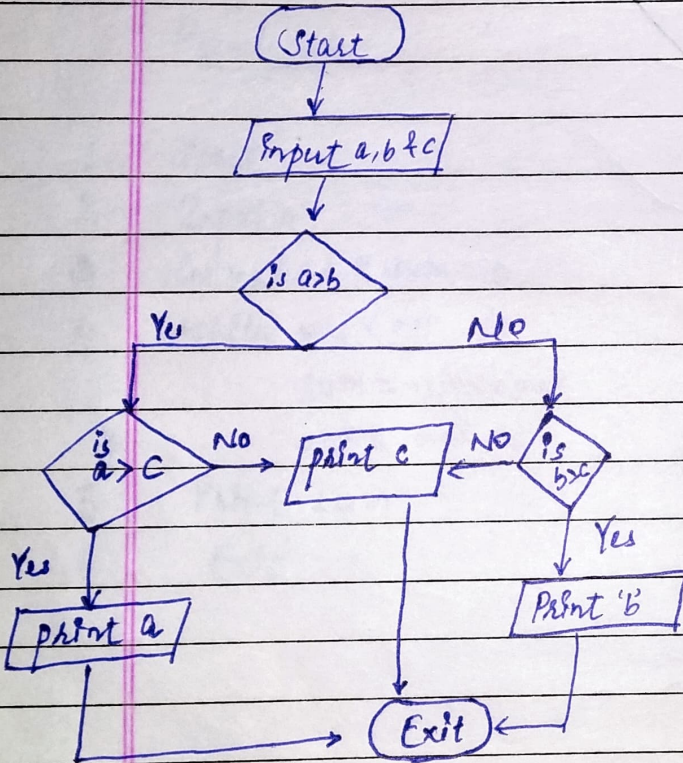 Start
input a, b & c
is a>b
Yes
No
is
a > C
No
print c
No
is
b>c
Yes
Yes
print a
Print 'b'
Exit